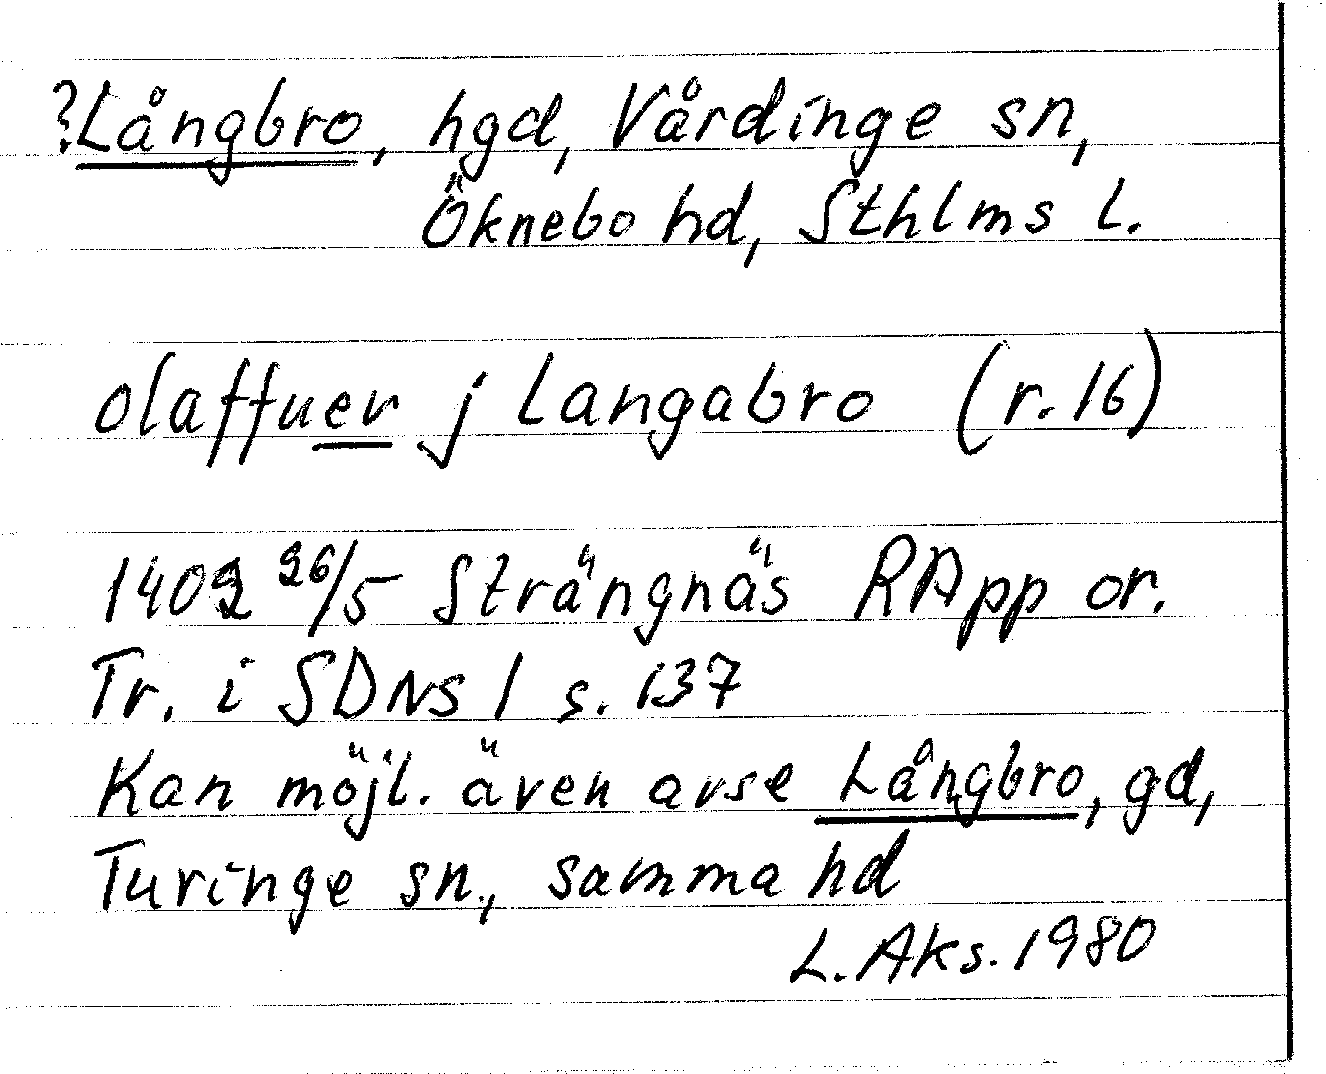 ?Långbro, hgd, Vårdinge sn,
Öknebo hd, Sthlms l.
olaffuer j Langabro (r. 16)
1402 26/5 Strängnäs RApp or.
Tr. i SDNS 1 s. 137
Kan möjl. även avse Långbro, gd,
Turinge sn., samma hd
L. Aks. 1980